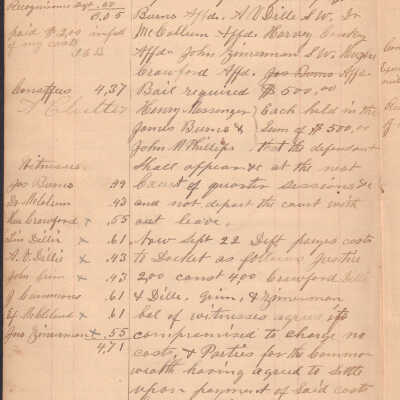 Recognizance 2 & .80
6.05
paid $2.00 in full
of my costs
Constables 4,37
Witnesses
Jos Burns .49
Dr McCollum .43
Crawford x .55
Dille x .61
A. V. Dille x .43
John Grim x .43
J Cummons .61
McClelland x .61
Jno Zimerman x .55
4,71
Burns Affd. A V Dille S W. Dr
McCollum Affd. Harvey
Affd. John Zimerman S. W.
Crawford Affd. Jos Burns Affd.
Bail required $500,00
Henry Messenger ) Each held in the
James Burns & ) Sum of $500,00
John M Phillips ) that the defendant
Shall appear &c at the next
Court of quarter sessions &c
and not depart the court with
out leave.
Now Sept 22 Deft pays costs
to Docket as follows Justice
2,00 const 4,00 Crawford Dille
& Dille, Grim, & Zimerman
bal of witnesses agrees
compromised to charge no
costs, & Parties for the Common
wealth having agreed to Settle
upon payment of Said costs